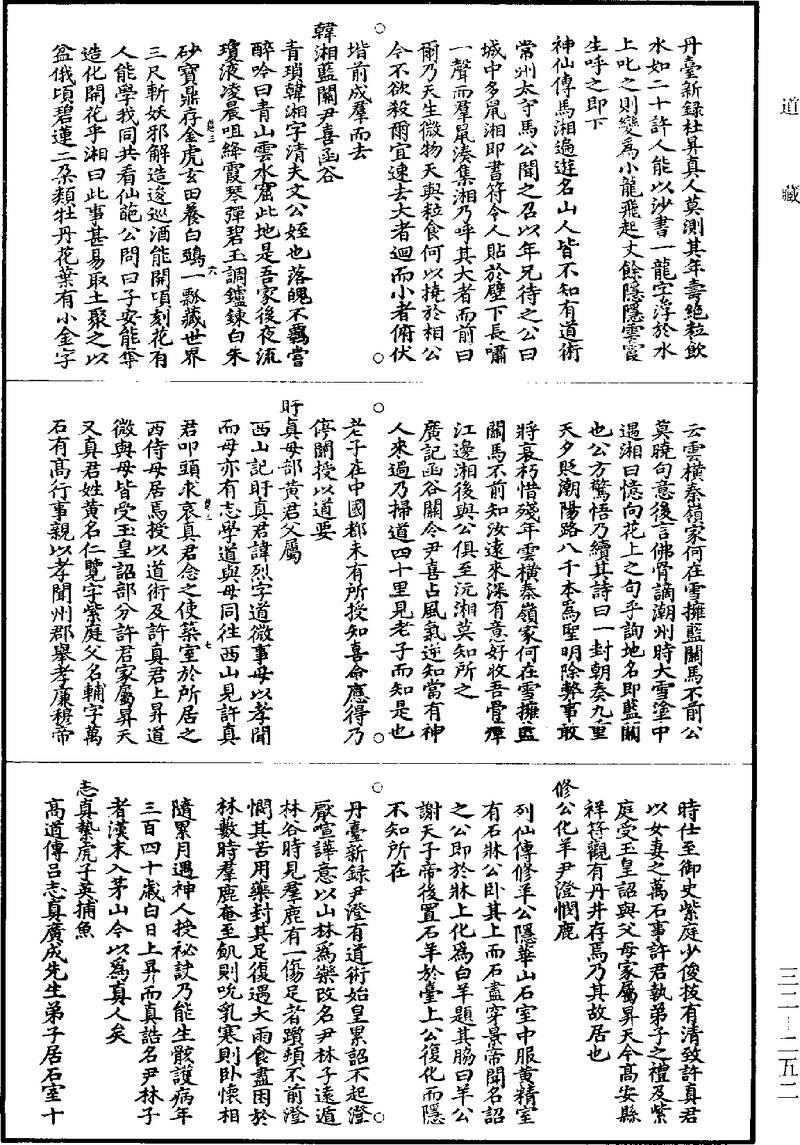 道藏
丹臺新録杜昇真人莫測其年壽絕粒飲
水如二十許人能以沙書一龍字浮於水
上叱之則變為小龍飛起丈餘隱隱雲霞
生呼之即下
神仙傳馬湘遍遊名山人皆不知有道術
常州太守馬公聞之召以年兄待之公曰
城中多鼠湘即書符令人貼於壁下長嘯
一聲而羣鼠湊集湘乃呼其大者而前曰
爾乃天生微物天與粒食何以撓於相公
今不欲殺爾宜速去大者迴而小者俯伏
堦前成羣而去
韓湘藍關尹喜函谷
青瑣韓湘字清夫文公姪也落魄不羈嘗
醉吟曰青山雲水窟此地是吾家後夜流
瓊液凌晨咀絳霞琴彈碧玉調鑪鍊白朱
砂寶鼎存金虎玄田養白鵶一瓢藏世界
三尺斬妖邪解造逡巡酒能開頃刻花有
人能學我同共看仙葩公問曰子安能奪
造化開花乎湘曰此事甚易取土聚之以
盆俄頃碧蓮二朵類牡丹花葉有小金字
云雲橫秦嶺家何在雪擁藍關馬不前公
莫曉句意後言佛骨謫潮州時大雪塗中
遇湘曰憶向花上之句乎詢地名即藍關
也公方驚悟乃續其詩曰一封朝奏九重
天夕貶潮陽路八千本為聖明除弊事敢
將衰朽惜殘年雲橫秦嶺家何在雪擁藍
關馬不前知汝遠來深有意好收吾骨瘴
江邊湘後與公俱至沅湘莫知所之
廣記函谷關令尹喜占風氣逆知當有神
人來過乃掃道四十里見老子而知是也
老子在中國都未有所授知喜命應得乃
停關授以道要
盱真母部黃君父屬
西山記盱真君諱烈字道微事母以孝聞
而母亦有志學道與母同往西山見許真
君叩頭求哀真君念之使築室於所居之
西侍母居焉授以道術及許真君上昇道
微與母皆受玉皇詔部分許君家屬昇天
又真君姓黃名仁覽字紫庭父名輔字萬
石有高行事親以孝聞州郡舉孝廉穆帝
時仕至御史紫庭少俊拔有清致許真君
以女妻之萬石事許君執弟子之禮及紫
庭受玉皇詔與父母家屬昇天今高安縣
祥符觀有丹井存焉乃其故居也
修公化羊尹澄憫鹿
列仙傳修羊公隱華山石室中服黃精室
有石牀公卧其上而石盡穿景帝聞名詔
之公即於牀上化為白羊題其脇曰羊公
謝天子帝後置石羊於臺上公復化而隱
不知所在
丹臺新録尹澄有道術始皇累詔不起澄
厭喧譁意以山林為樂改名尹林子遠遁
林谷時見羣鹿有一傷足者躓頓不前澄
憫其苦用藥封其足復遇大雨食盡困於
林數時羣鹿奄至飢則吮乳寒則卧懷相
隨累月遇神人授祕訣乃能生骸護病年
三百四十歲白日上昇而真誥名尹林子
者漢末入茅山今以為真人矣
志真縶虎子英捕魚
高道傳吕志真廣成先生弟子居石室十
三二－二五二